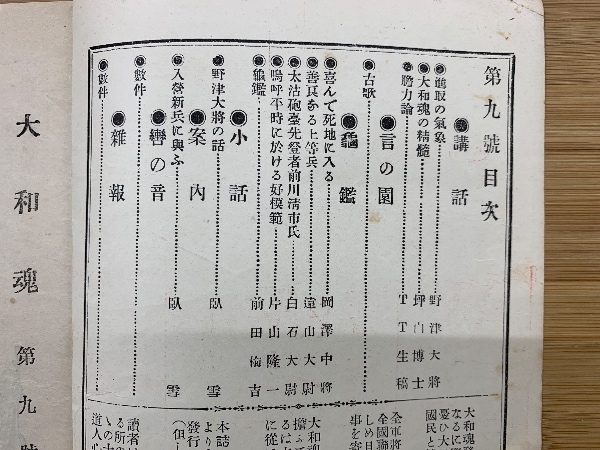 第九號目次
◉講話
◉進取の氣象………野津大將
◉大和魂の精髓………坪内博士
◉膽力論………TT生稿
◉言の園
◉古歌
◉龜鑑
◉喜んで死地に入る………岡澤中將
◉善良なる上等兵………遠山大尉
◉太沽砲臺先登者前川淸市氏………白石大尉
◉嗚呼平時に於ける好模範………片山隆一
◉龜鑑………前田梅吉
◉小話
◉野津大將の話………臥雲
◉案內
◉入營新兵に與ふ………臥雲
◉轡の音
◉數件
◉雜報
◉數件
大和魂
なるに
憂ひ大
國民と
全軍將
全國聯
しめ目
事を寄
大和魂
擔
るは
に從
本誌
より
發行
(但し
讀者
る所の
道人心
大和魂 第九號